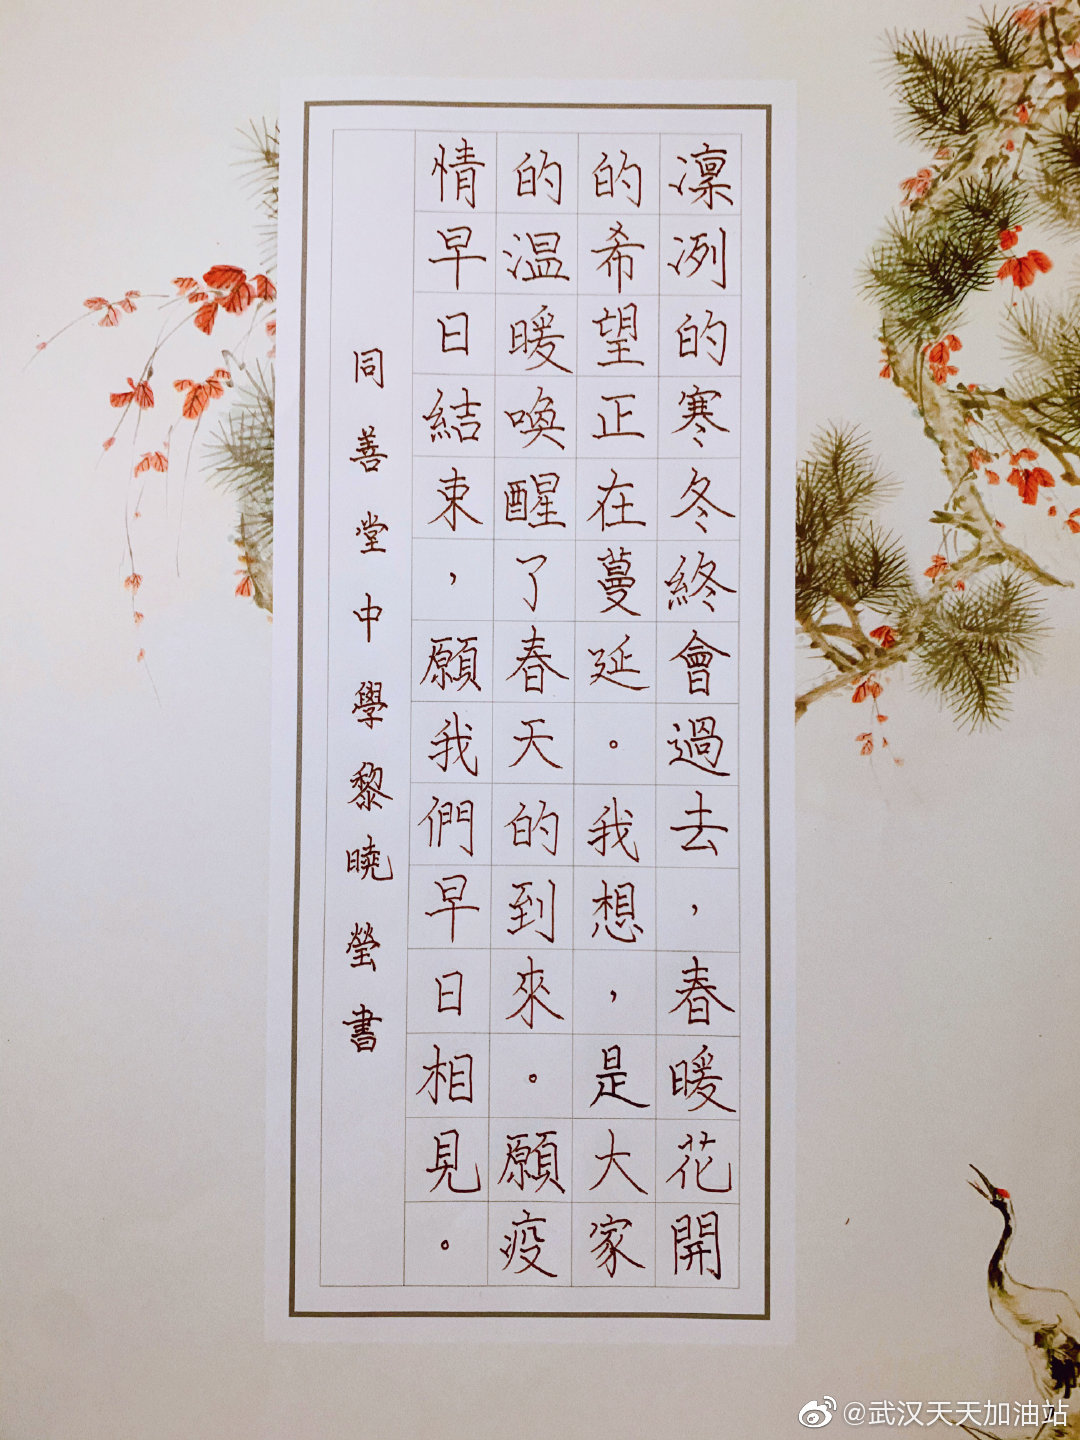 凛冽的寒冬終會過去，春暖花開
的希望正在蔓延。我想，是大家
的温暖喚醒了春天的到來。願疫
情早日結束，願我們早日相見。
同善堂中學黎曉瑩書
@武汉天天加油站